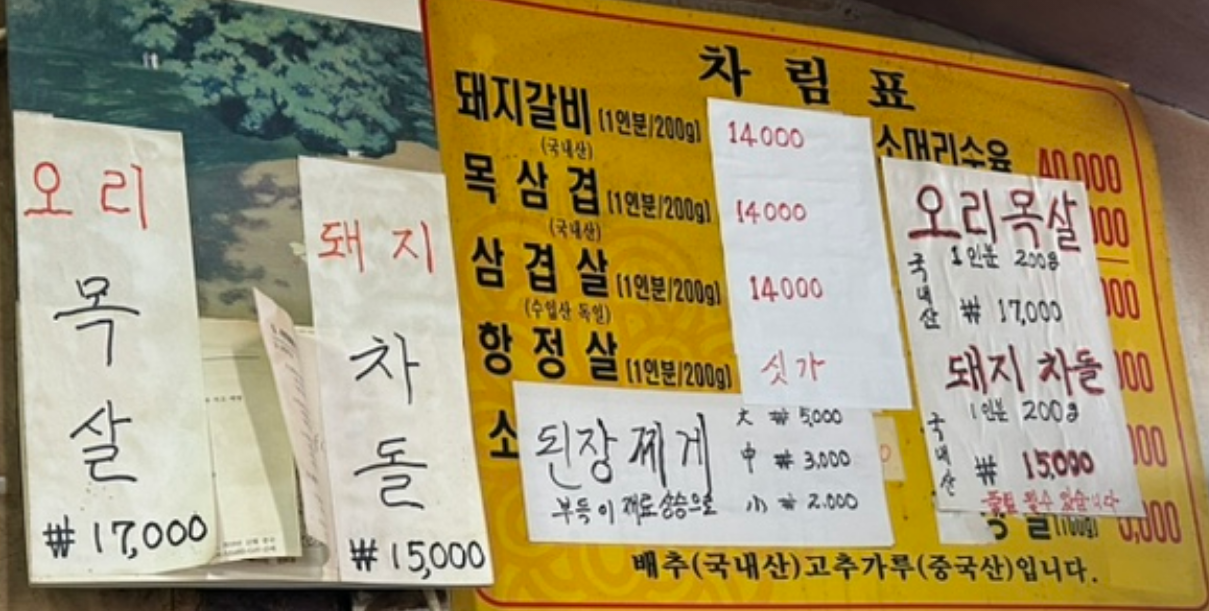 오리
목
살
₩ 17,000
돼지
차
돌
₩ 15,000
차림표
돼지갈비 (1인분/200g) 14000
(국내산)
목삼겹 (1인분/200g) 14000
(국내산)
삼겹살 (1인분/200g) 14000
(수입산 독일)
항정살 (1인분/200g) 싯가
소
된장찌게
大 ₩ 5,000
中 ₩ 3,000
小 ₩ 2.000
부득이 재료상승으로
소머리수육 40,000
오리목살
1인분 200g
국내산
₩ 17,000
돼지 차돌
1인분 200g
국내산
₩ 15,000
품절 될수 있습니다
배추(국내산)고추가루(중국산)입니다.